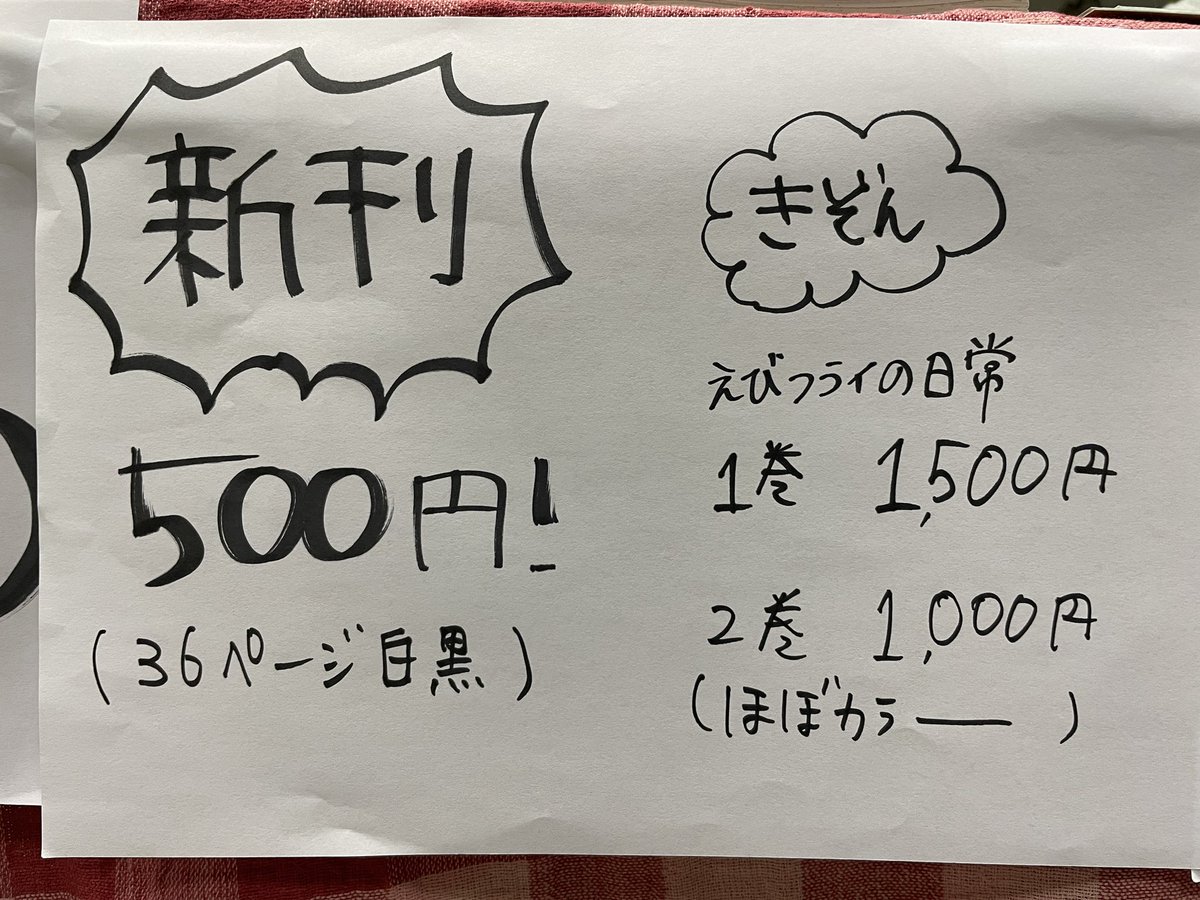 新刊
500円!
(36ページ白黒)
きぞん
えびフライの日常
1巻 1,500円
2巻 1,000円
(ほぼカラー)